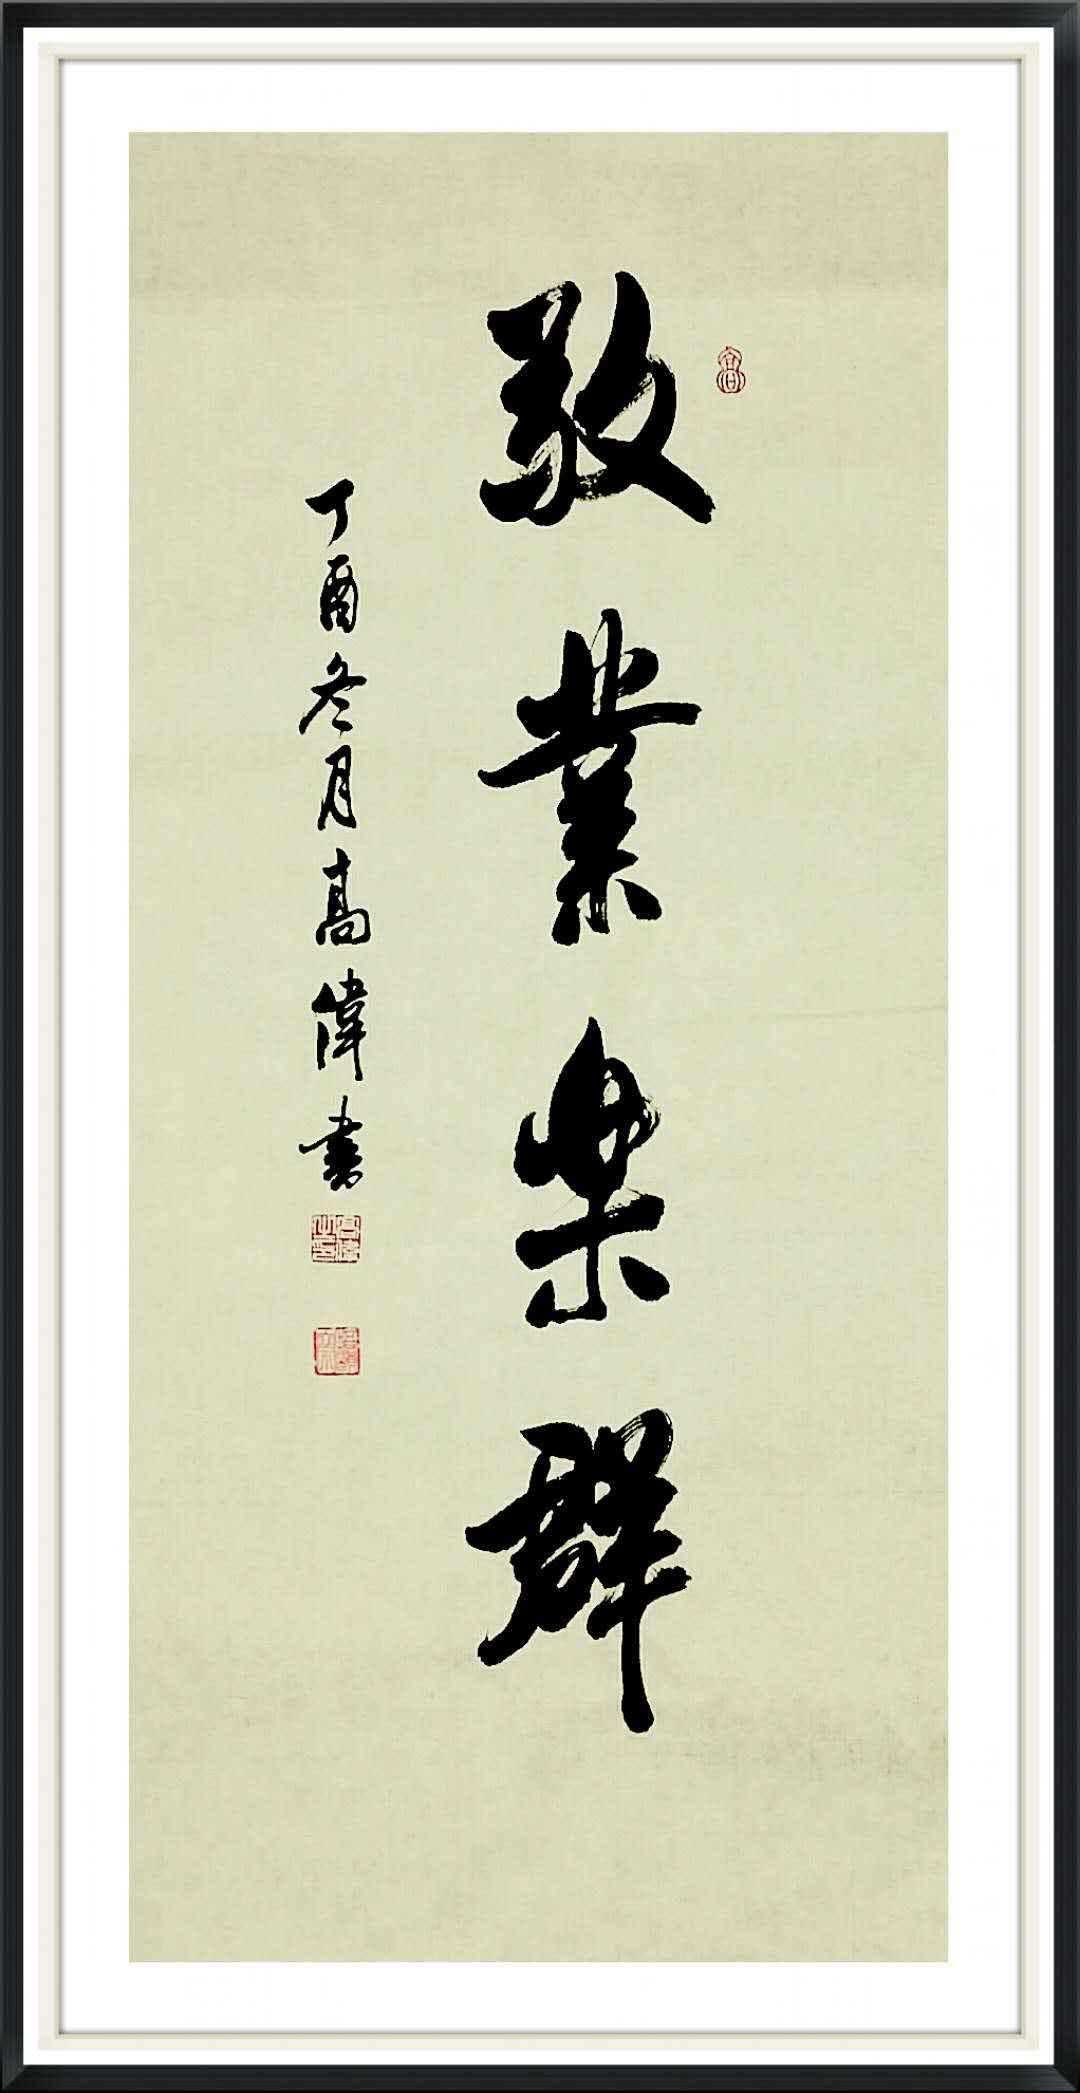 敬業樂群
丁酉冬月高偉書